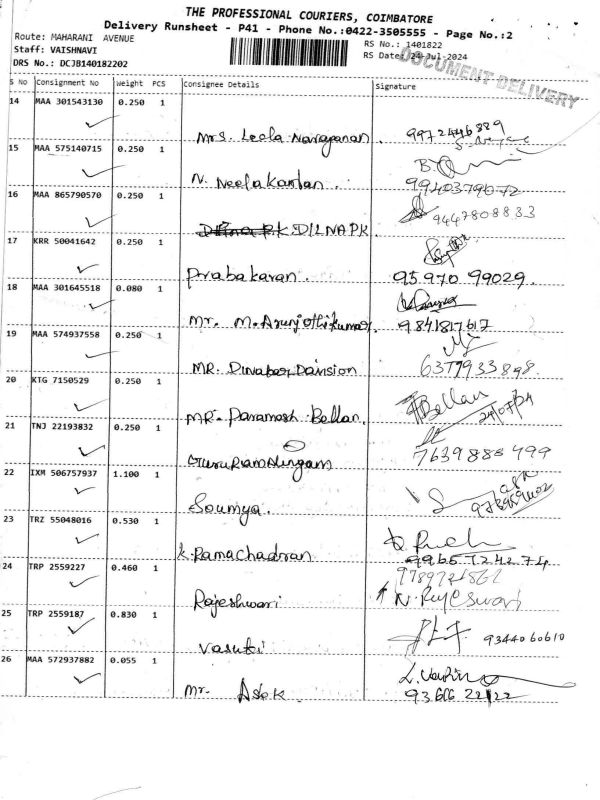 THE PROFESSIONAL COURIERS, COIMBATORE
Delivery Runsheet - P41 - Phone No.:0422-3505555 - Page No.:2
Route: MAHARANI AVENUE
Staff: VAISHNAVI
DRS No.: DCJB140182202
RS No.: 1401822
RS Date: 24-Jul-2024
DOCUMENT DELIVERY
S No Consignment No Weight PCS Consignee Details Signature
14 MAA 301543130 0.250 1
Mrs. Leela Narayanan. 9972446889
15 MAA 575140715 0.250 1
N. Neelakantan.
16 MAA 865790570 0.250 1
DILNA PK 9447808833
17 KRR 50041642 0.250 1
Prabakaran. 95970 99029.
18 MAA 301645518 0.080 1
Mr. M. Arunjothikumar. 9841817617
19 MAA 574937558 0.250 1
MR. Dinabor Davision 6377933898.
20 KTG 7150529 0.250 1
MR. Paramesh Bellan. Bellan 24/07/24
21 TNJ 22193832 0.250 1
Gururamalingam 7639885499
22 IXM 506757937 1.100 1
Soumya.
23 TRZ 55048016 0.530 1
K. Ramachadran 9965724274
24 TRP 2559227 0.460 1
9789721562
Rajeshwari N. Rajeswari
25 TRP 2559187 0.830 1
Vasuki 9344060610
26 MAA 572937882 0.055 1
Mr. Asok 93606 22122